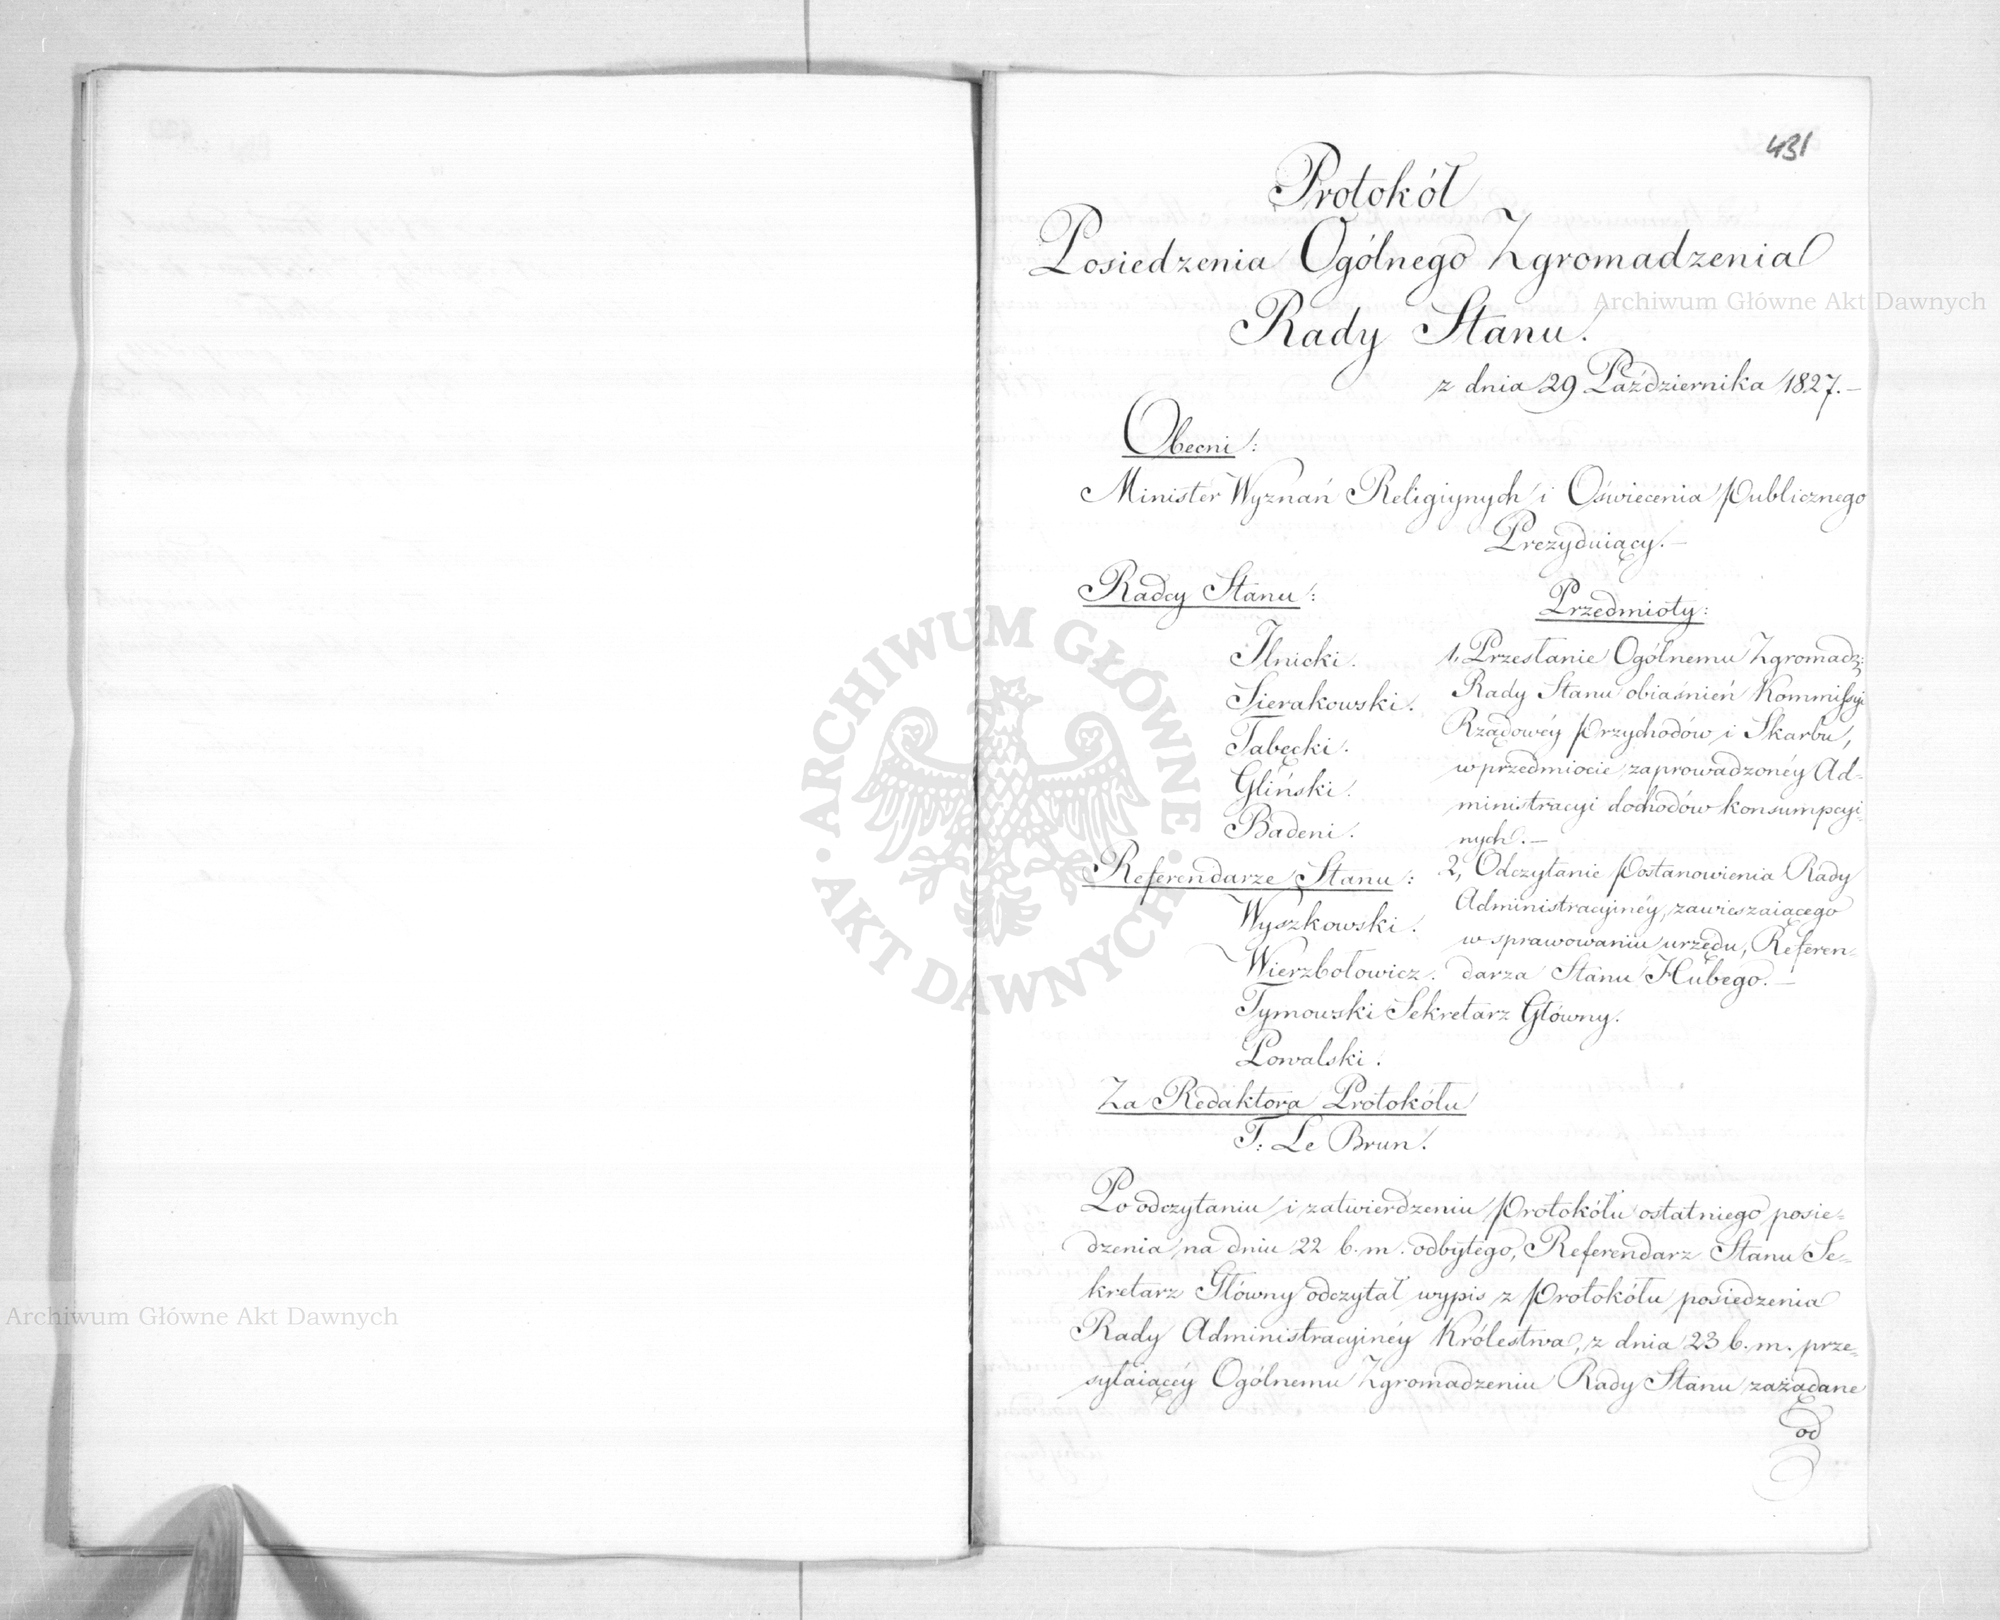 431
Protokół
Posiedzenia Ogólnego Zgromadzenia
Rady Stanu.
z dnia 29 Października 1827.—
Obecni:
Minister Wyznań Religiynych i Oświecenia Publicznego
Prezyduiący.—
Radcy Stanu:
Ilnicki.
Sierakowski.
Tabęcki.
Gliński.
Badeni.
Referendarze Stanu:
Wyszkowski.
Wierzbołowicz.
Tymowski Sekretarz Główny.
Lowalski.
Za Redaktora Protokółu
T: Le Brun.
Przedmioty:
1, Przesłanie Ogólnemu Zgromadz:
Rady Stanu obiaśnień Kommissyi
Rządowéy Przychodów i Skarbu,
w przedmiocie zaprowadzonéy Ad-
ministracyi dochodów konsumpcyi-
nych.—
2, Odczytanie Postanowienia Rady
Administracyinéy, zawieszaiącego
w sprawowaniu urzędu, Referen-
darza Stanu Hubego.—
Po odczytaniu i zatwierdzeniu Protokółu ostatniego posie-
dzenia na dniu 22 b.m. odbytego, Referendarz Stanu Se-
kretarz Główny odczytał wypis z Protokółu posiedzenia
Rady Administracyinéy Królestwa, z dnia 23 b.m. prze-
syłaiącéy Ogólnemu Zgromadzeniu Rady Stanu zażądane
od
Archiwum Główne Akt Dawnych
Archiwum Główne Akt Dawnych
ARCHIWUM GŁÓWNE · AKT DAWNYCH ·